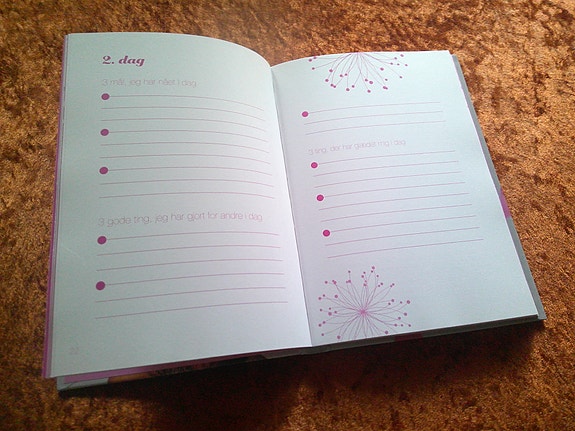 2. dag
3 mål, jeg har nået i dag
3 gode ting, jeg har gjort for andre i dag
3 ting, der har glædet mig i dag